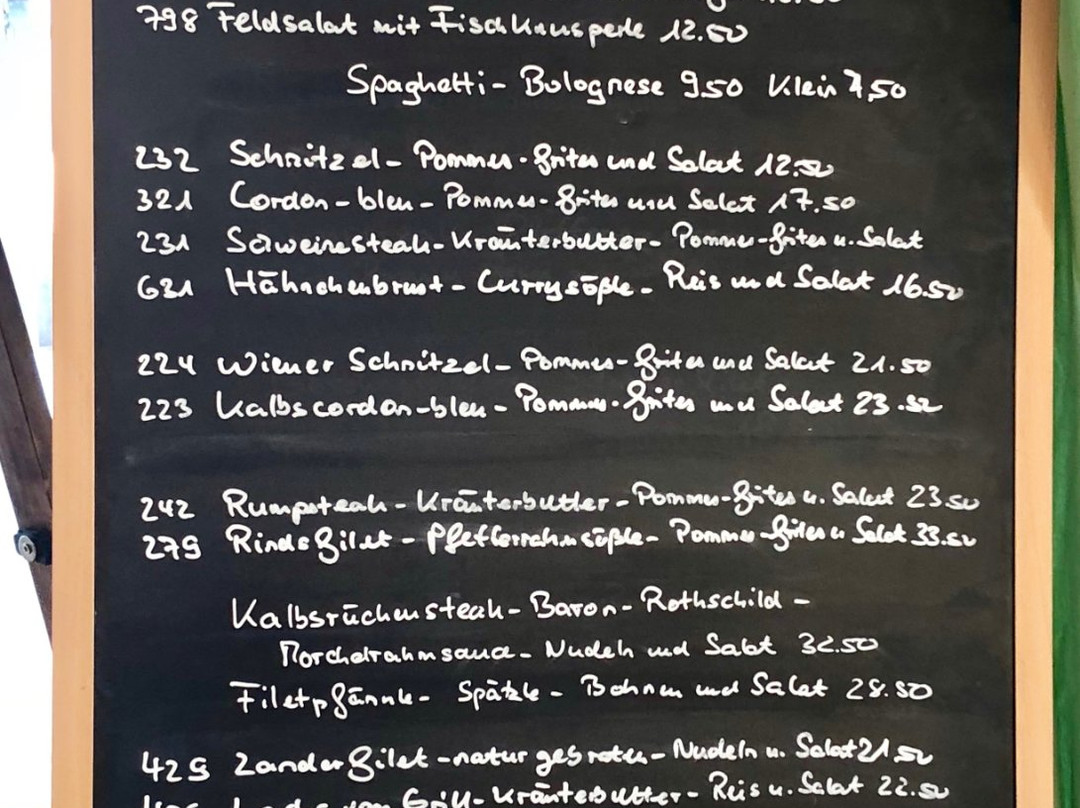 798 Feldsalat mit Fischknusperle 12.50
Spaghetti - Bolognese 9.50 Klein 7,50
232 Schnitzel - Pommes - frites und Salat 12.50
321 Cordon - bleu - Pommes - frites und Salat 17.50
231 Schweinesteak - Kräuterbutter - Pommes - frites u. Salat
631 Hähnchenbrust - Currysößle - Reis und Salat 16.50
224 Wiener Schnitzel - Pommes - frites und Salat 21.50
223 Kalbscordon - bleu - Pommes - frites und Salat 23.50
242 Rumpsteak - Kräuterbutter - Pommes - frites u. Salat 23.50
279 Rindsfilet - Pfefferrahmsößle - Pommes - frites u Salat 33.50
Kalbsrückensteak - Baron - Rothschild -
Morchelrahmsauce - Nudeln und Salat 32.50
Filetpfännle - Spätzle - Bohnen und Salat 28.50
429 Zanderfilet - natur gebraten - Nudeln u. Salat 21.50
vom Grill - Kräuterbutter - Reis u. Salat 22.50